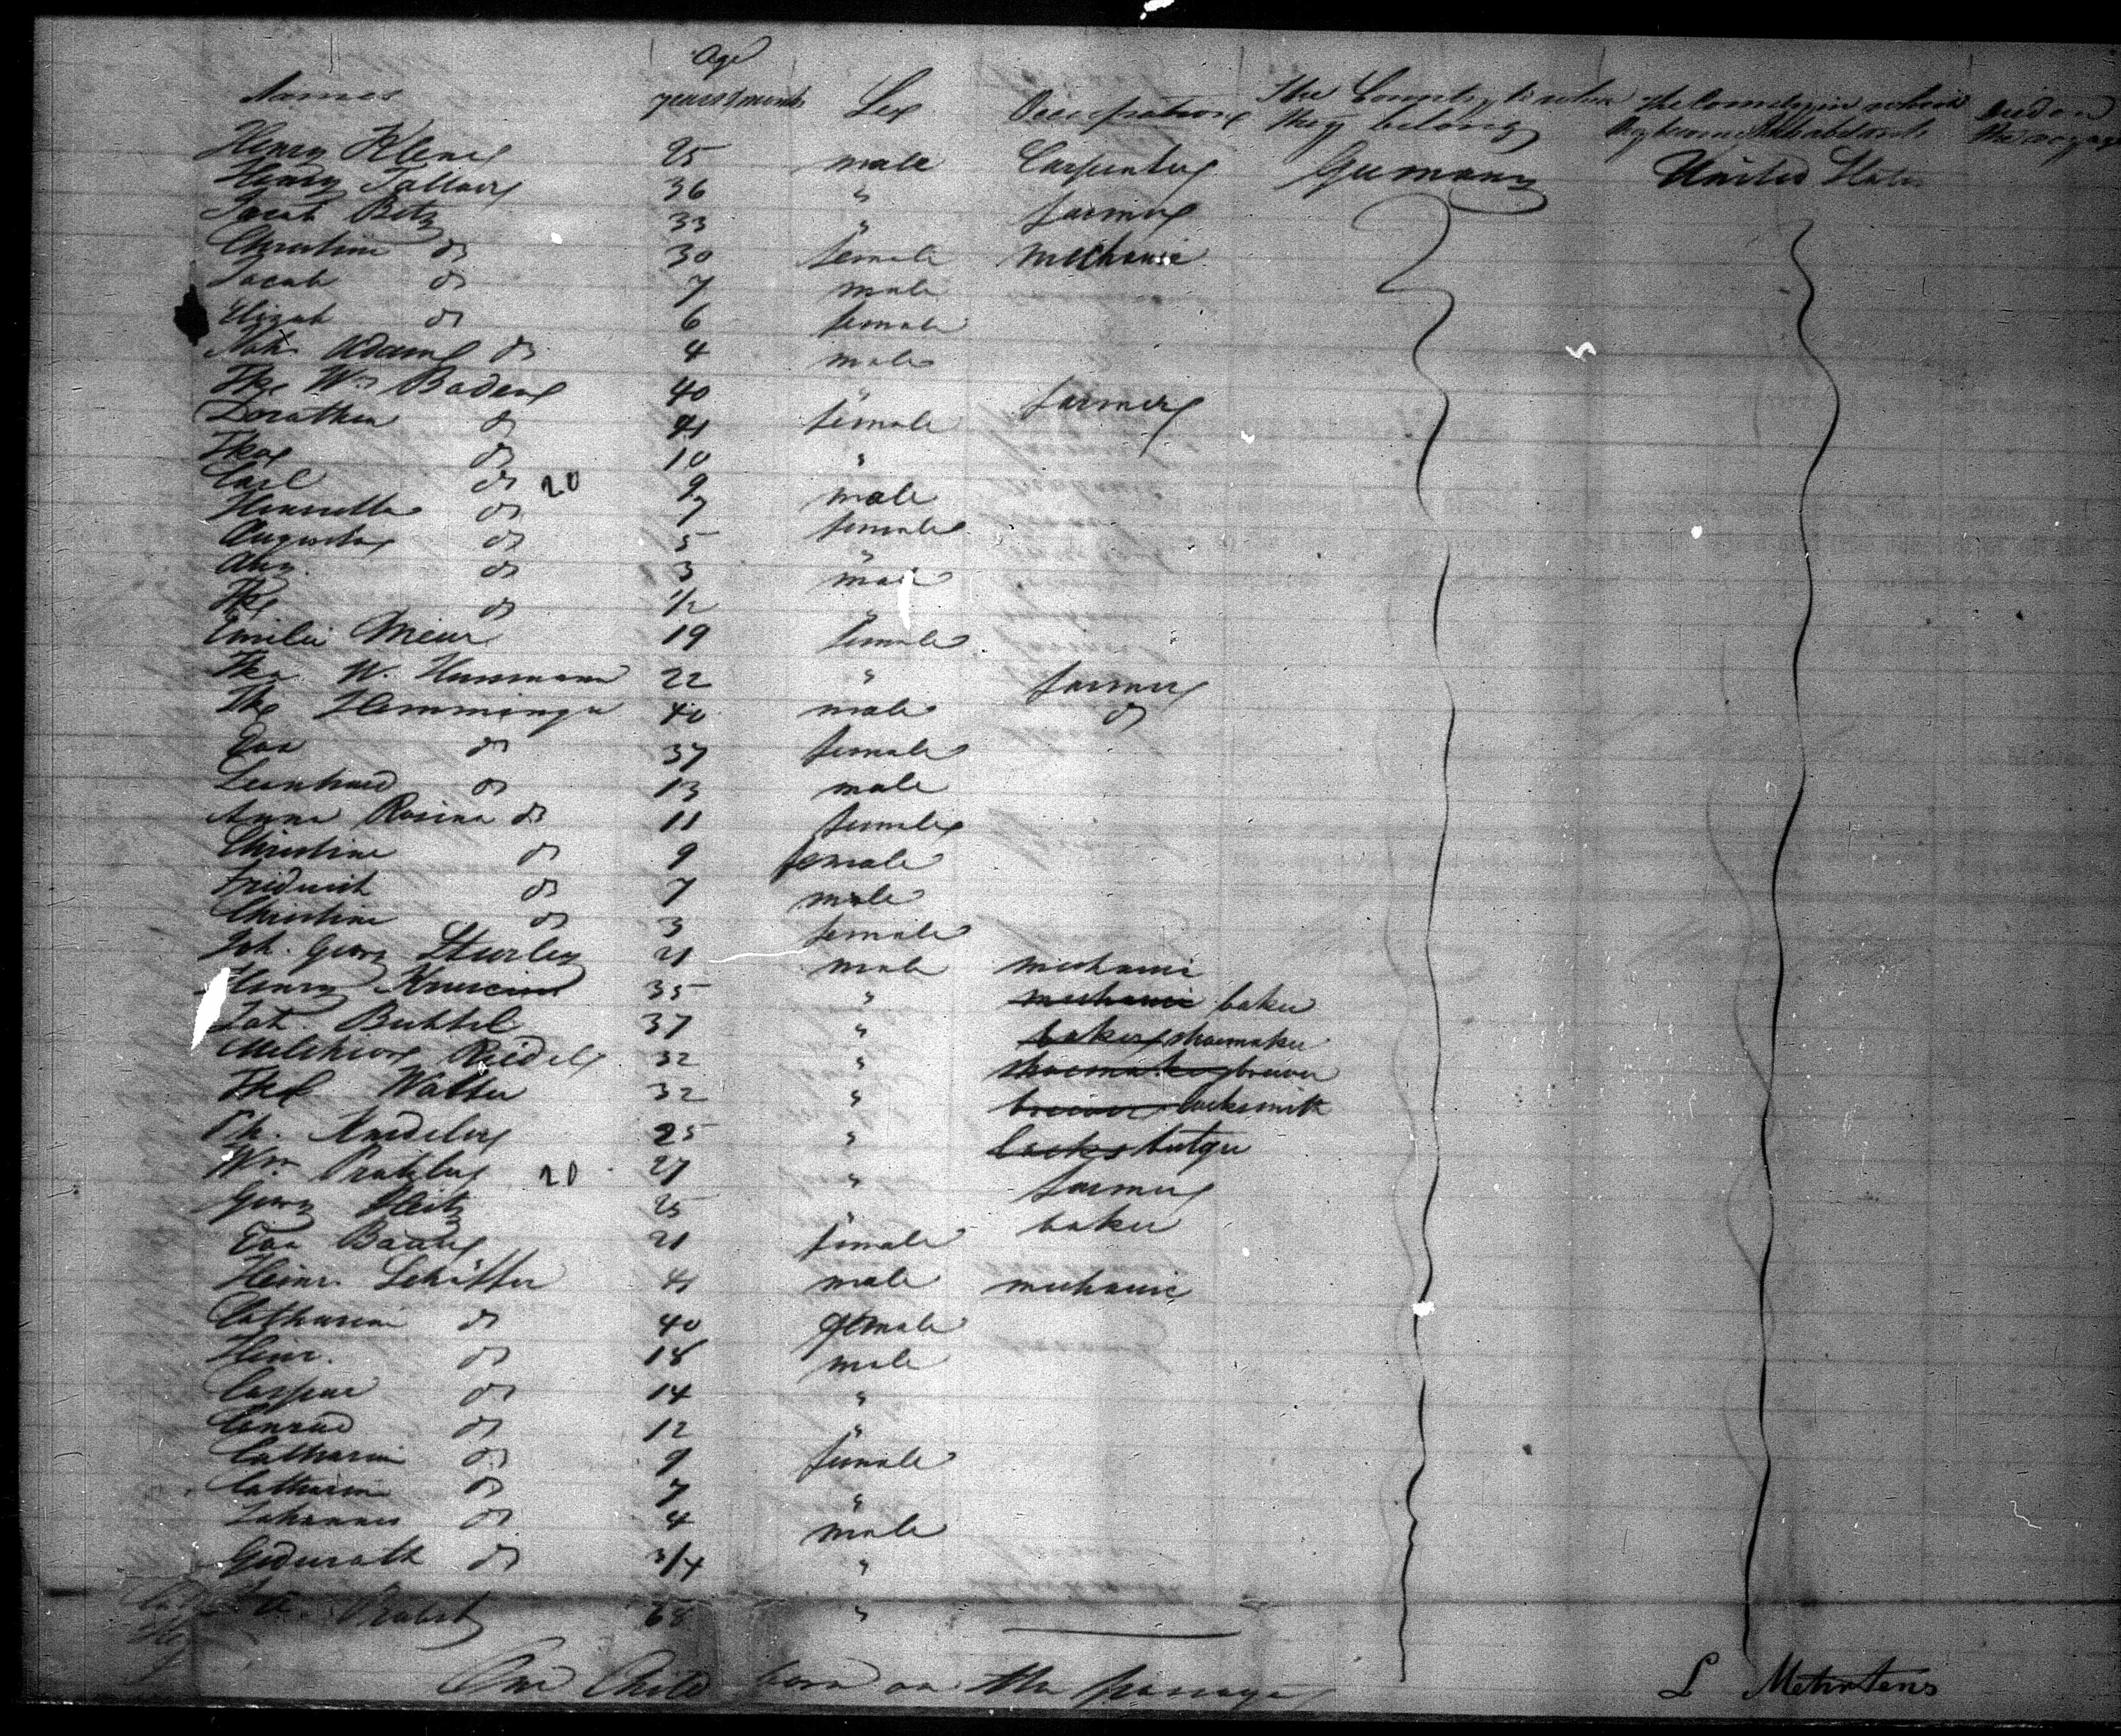 Age
Names years & months Sex Occupation The Country to which they belong The Country in which they become Inhabitants Died on the voyage
Henry Klene 25 male Carpenter Germany United States
Henry 36 " farmer
Jacob Betz 33 "
Christine do 30 female mechanic
Jacob do 7 male
Elizab do 6 female
Joh. Adam do 4 male
Fke Wm Baden 40 " farmer
Dorothea do 41 female
do 10 "
Carl do 20 9 male
Henriette do 7 female
Augusta do 5 "
do 3 male
do 1/2 "
Emilie Meier 19 female
W. Hussmann 22 " farmer
Hemminger 40 male do
Eva do 37 female
Leonhard do 13 male
Anna Rosina do 11 female
Christine do 9 female
Fridrich do 7 male
Christine do 3 female
Joh. Georg 21 male mechanic
Henry 35 " mechanic baker
Joh. 37 " baker shoemaker
Melchior Riedel 32 " shoemaker brewer
Walter 32 " brewer locksmith
25 " locks butger
Wm 20 27 " farmer
Georg 25 " baker
Eva 21 female
Heinr. Schäffer 41 male mechanic
Catharine do 40 female
Heinr. do 18 male
Caspar do 14 "
Conrad do 12 "
Catharin do 9 female
Catharine do 7 "
Johannes do 4 male
do 3/4 "
Probst 68 "
One Child born on the passage
L Metrstens